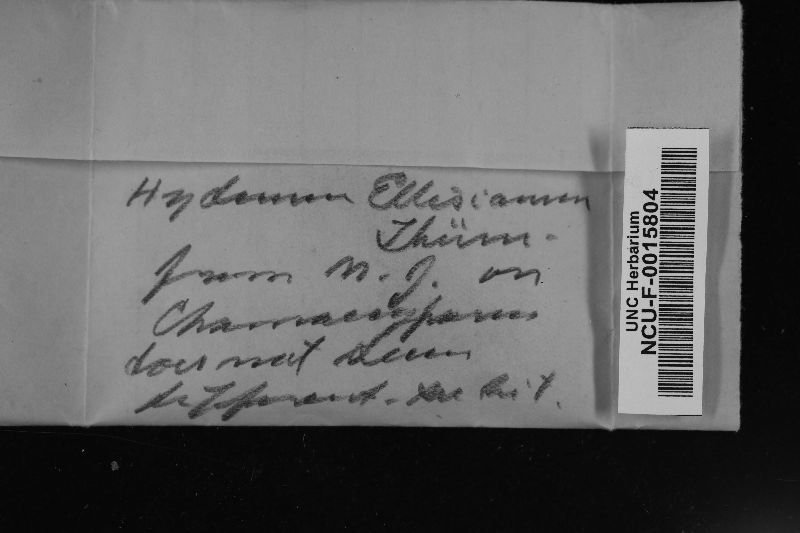 Hydnum Ellisianum
Thüm.
from N. J. on
Chamaecyparis
does not seem
different. See
UNC Herbarium
NCU-F-0015804